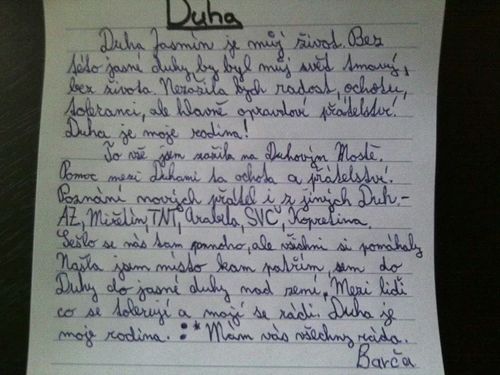 Duha
Duha Jasmín je můj život. Bez
této jasné duhy by byl můj svět tmavý,
bez života. Nezažila bych radost, ochotu,
toleranci, ale hlavně opravdové přátelství.
Duha je moje rodina!
To vše jsem zažila na Duhovým Mostě.
Pomoc mezi Duhami ta ochota a přátelství.
Poznání nových přátel i z jiných Duh -
AŽ, Miželín, TNT, Arabela, SVČ, Kopretina.
Sešlo se nás tam pomnoho, ale všichni si pomáhaly
Našla jsem místo kam patřím, sem do
Duhy do jasné duhy nad zemí, Mezi lidi
co se tolerují a mají se rádi. Duha je
moje rodina. :* Mám vás všechny ráda.
Barča